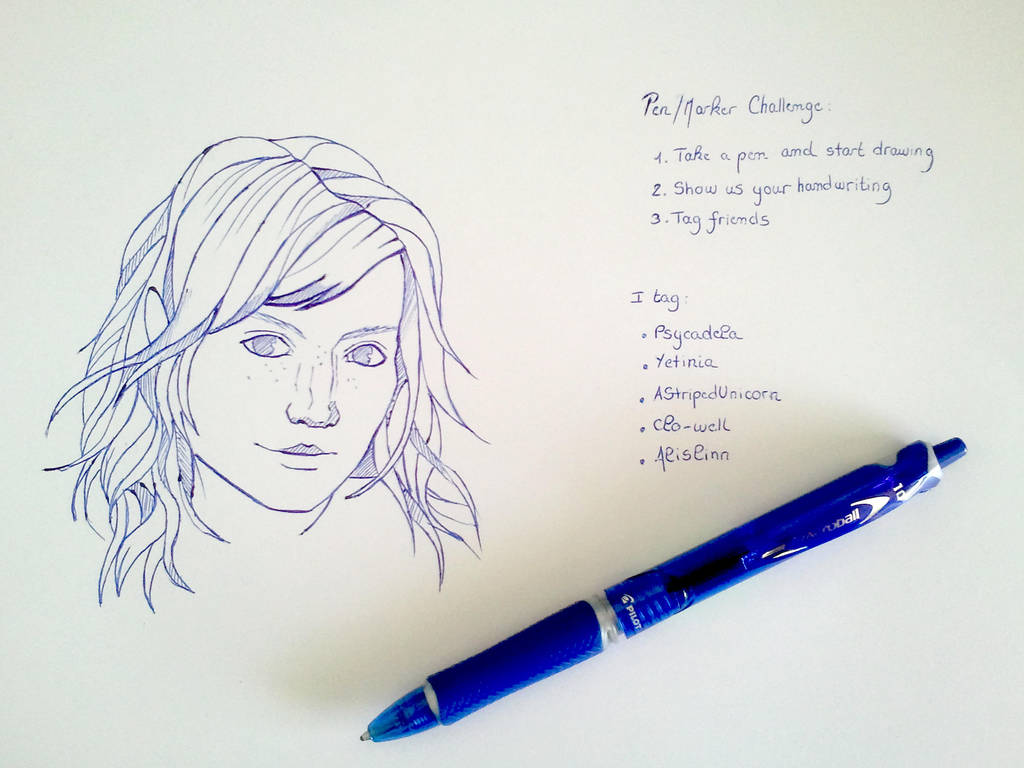 Pen/Marker Challenge:
1. Take a pen and start drawing
2. Show us your handwriting
3. Tag friends
I tag:
• Psycadela
• Yetinia
• AStripedUnicorn
• Clo-well
• Aislinn
PILOT